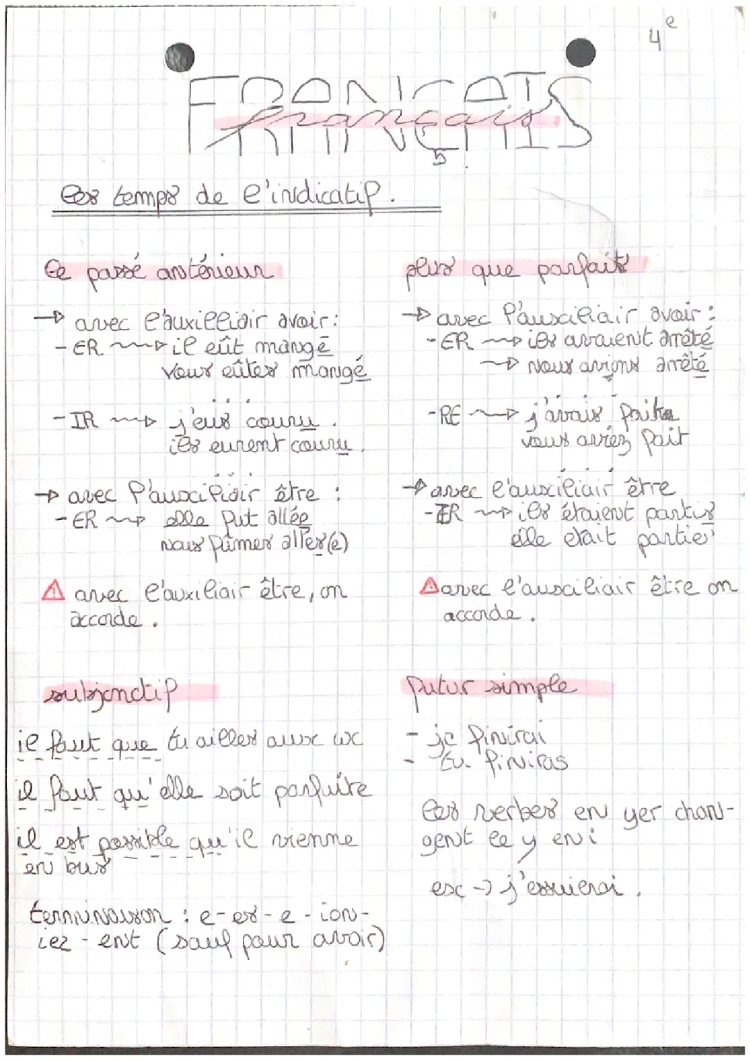 4e
FRANÇAIS
français
les temps de l'indicatif.
Le passé antérieur
→ avec l'auxilliair avoir:
- ER → il eût mangé
vous eûtes mangé
...
- IR → j'eus couru.
ils eurent couru.
...
→ avec l'auxiliair être :
- ER → elle fut allée
nous fûmes aller(e)
⚠ avec l'auxiliair être, on
accorde.
plus que parfait
→ avec l'auxciliair avoir:
- ER → ils avaient arrêté
→ nous avions arrêté
...
- RE → j'avais faite
vous aviez fait
...
→ avec l'auxiliair être
- IR → ils étaient partis
elle était partie
⚠ avec l'auxciliair être on
accorde.
subjonctif
il faut que tu ailles aux wc
il faut qu'elle soit parfuite
il est possible qu'il vienne
en bus
terminaison : e-es-e-ion-
iez-ent (sauf pour avoir)
futur simple
- je finirai
- tu finiras
les verbes en yer chan-
gent le y en i
esc → j'essuierai.